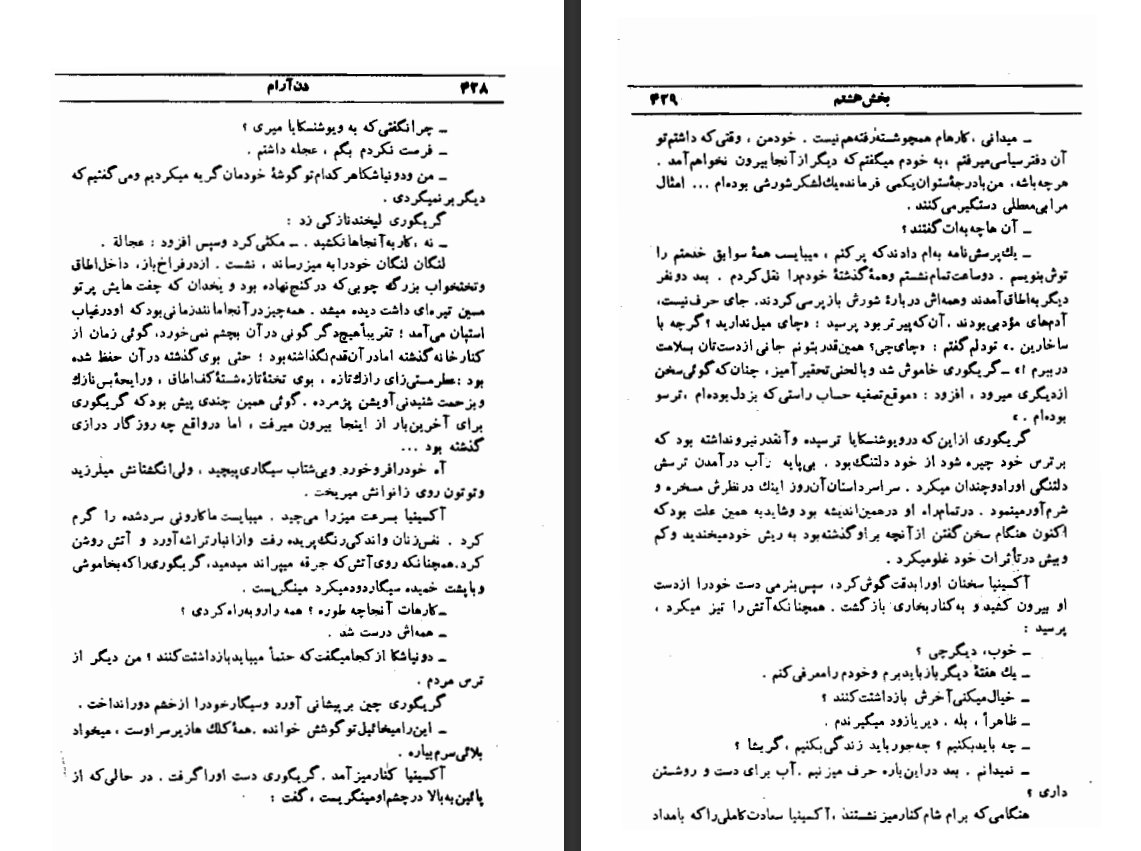 ۴۳۸ دن آرام
ـ چرا نگفتی که به ویوشنسکایا میری ؟
ـ فرصت نکردم بگم ، عجله داشتم .
ـ من و دونیاشکا هر کدام تو گوشهٔ خودمان گریه میکردیم و می گفتیم که
دیگر بر نمیگردی .
گریگوری لبخند نازکی زد :
ـ نه ، کار به آنجاها نکشید . ـ مکثی کرد و سپس افزود : عجالة .
لنگان لنگان خود را به میز رساند ، نشست . از در فراخ باز، داخل اطاق
و تختخواب بزرگ چوبی که در کنج نهاده بود و یخدان که چفت هایش پرتو
مسین تیره‌ای داشت دیده میشد . همه چیز در آنجا مانند زمانی بود که او در غیاب
استپان می‌آمد ؛ تقریباً هیچ دگرگونی در آن بچشم نمی خورد، گوئی زمان از
کنار خانه گذشته اما در آن قدم نگذاشته بود ؛ حتی بوی گذشته در آن حفظ شده
بود : عطر مستی زای رازک تازه ، بوی تختهٔ تازه شستهٔ کف اطاق ، و رایحهٔ بس نازک
و بزحمت شنیدنی آویشن پژمرده . گوئی همین چندی پیش بود که گریگوری
برای آخرین بار از اینجا بیرون میرفت ، اما در واقع چه روزگار درازی
گذشته بود ...
آه خود را فرو خورد و بی‌شتاب سیگاری پیچید ، ولی انگشتانش میلرزید
و توتون روی زانوانش میریخت .
آکسینیا بسرعت میز را می‌چید . میبایست ماکارونی سرد شده را گرم
کرد . نفس زنان و اندکی رنگ پریده رفت و از انبار تراشه آورد و آتش روشن
کرد. همچنانکه روی آتش که جرقه میپراند میدمید، گریگوری را که بخاموشی
و با پشت خمیده سیگار دود میکرد مینگریست .
ـ کارهات آنجا چه طوره ؟ همه را روبه‌راه کردی ؟
ـ همه‌اش درست شد .
ـ دونیاشکا از کجا میگفت که حتماً میباید بازداشتت کنند ؟ من دیگر از
ترس مردم .
گریگوری چین بر پیشانی آورد و سیگار خود را از خشم دور انداخت .
ـ این را میخائیل تو گوشش خوانده . همهٔ کلک ها زیر سر اوست ، میخواد
بلائی سرم بیاره .
آکسینیا کنار میز آمد . گریگوری دست او را گرفت . در حالی که از
پائین به بالا در چشم او مینگریست ، گفت :
بخش هشتم ۴۳۹
ـ میدانی ، کارهام همچو شسته رفته هم نیست . خود من ، وقتی که داشتم تو
آن دفتر سیاسی میرفتم ، به خودم میگفتم که دیگر از آنجا بیرون نخواهم آمد .
هرچه باشه، من با درجهٔ ستوان یکمی فرمانده یک لشکر شورشی بوده‌ام ... امثال
مرا بی معطلی دستگیر می کنند .
ـ آن ها چه به‌ات گفتند ؟
ـ یک پرسش نامه به‌ام دادند که پر کنم ، میبایست همهٔ سوابق خدمتم را
توش بنویسم . دو ساعت تمام نشستم و همهٔ گذشتهٔ خودم را نقل کردم . بعد دو نفر
دیگر به اطاق آمدند و همه‌اش دربارهٔ شورش بازپرسی کردند. جای حرف نیست،
آدم‌های مؤدبی بودند . آن که پیرتر بود پرسید : «چای میل ندارید ؟ گرچه با
ساخارین .» تو دلم گفتم : «چای چی؟ همین قدر بتونم جانی از دستتان بسلامت
در ببرم !» ـ گریگوری خاموش شد و با لحنی تحقیر آمیز ، چنان که گوئی سخن
از دیگری میرود ، افزود : «موقع تصفیه حساب راستی که بزدل بوده‌ام ، ترسو
بوده‌ام . »
گریگوری از این که در ویوشنسکایا ترسیده و آنقدر نیرو نداشته بود که
بر ترس خود چیره شود از خود دلتنگ بود . بی‌پایه ز آب در آمدن ترسش
دلتنگی او را دو چندان میکرد . سراسر داستان آن روز اینک در نظرش مسخره و
شرم آور مینمود . در تمام راه او در همین اندیشه بود و شاید به همین علت بود که
اکنون هنگام سخن گفتن از آنچه بر او گذشته بود به ریش خود میخندید و کم
و بیش در تأثرات خود غلو میکرد .
آکسینیا سخنان او را بدقت گوش کرد، سپس بنرمی دست خود را از دست
او بیرون کشید و به کنار بخاری بازگشت . همچنانکه آتش را تیز میکرد ،
پرسید :
ـ خوب، دیگر چی ؟
ـ یک هفتهٔ دیگر باز باید برم و خودم را معرفی کنم .
ـ خیال میکنی آخرش بازداشتت کنند ؟
ـ ظاهراً ، بله . دیر یا زود میگیرندم .
ـ چه باید بکنیم ؟ چه جور باید زندگی بکنیم ، گریشا ؟
ـ نمیدانم . بعد در این باره حرف میزنیم . آب برای دست و روشستن
داری ؟
هنگامی که برای شام کنار میز نشستند ، آکسینیا سعادت کاملی را که بامداد